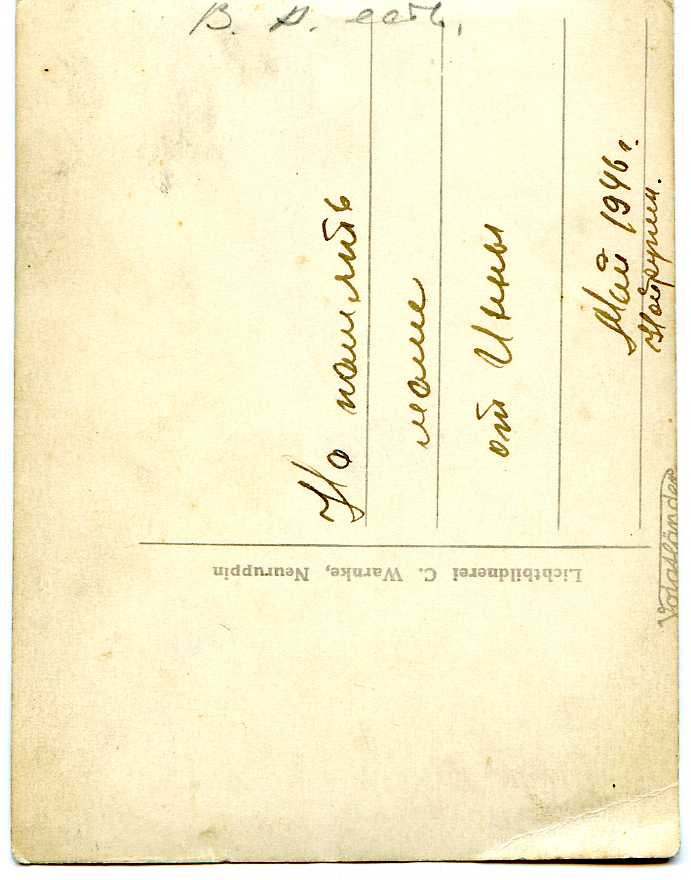 В. А. есть.
На память
маме
от Инны
Май 1946 г.
Нойрупин.
Lichtbildnerei C. Warnke, Neuruppin
Voigtländer